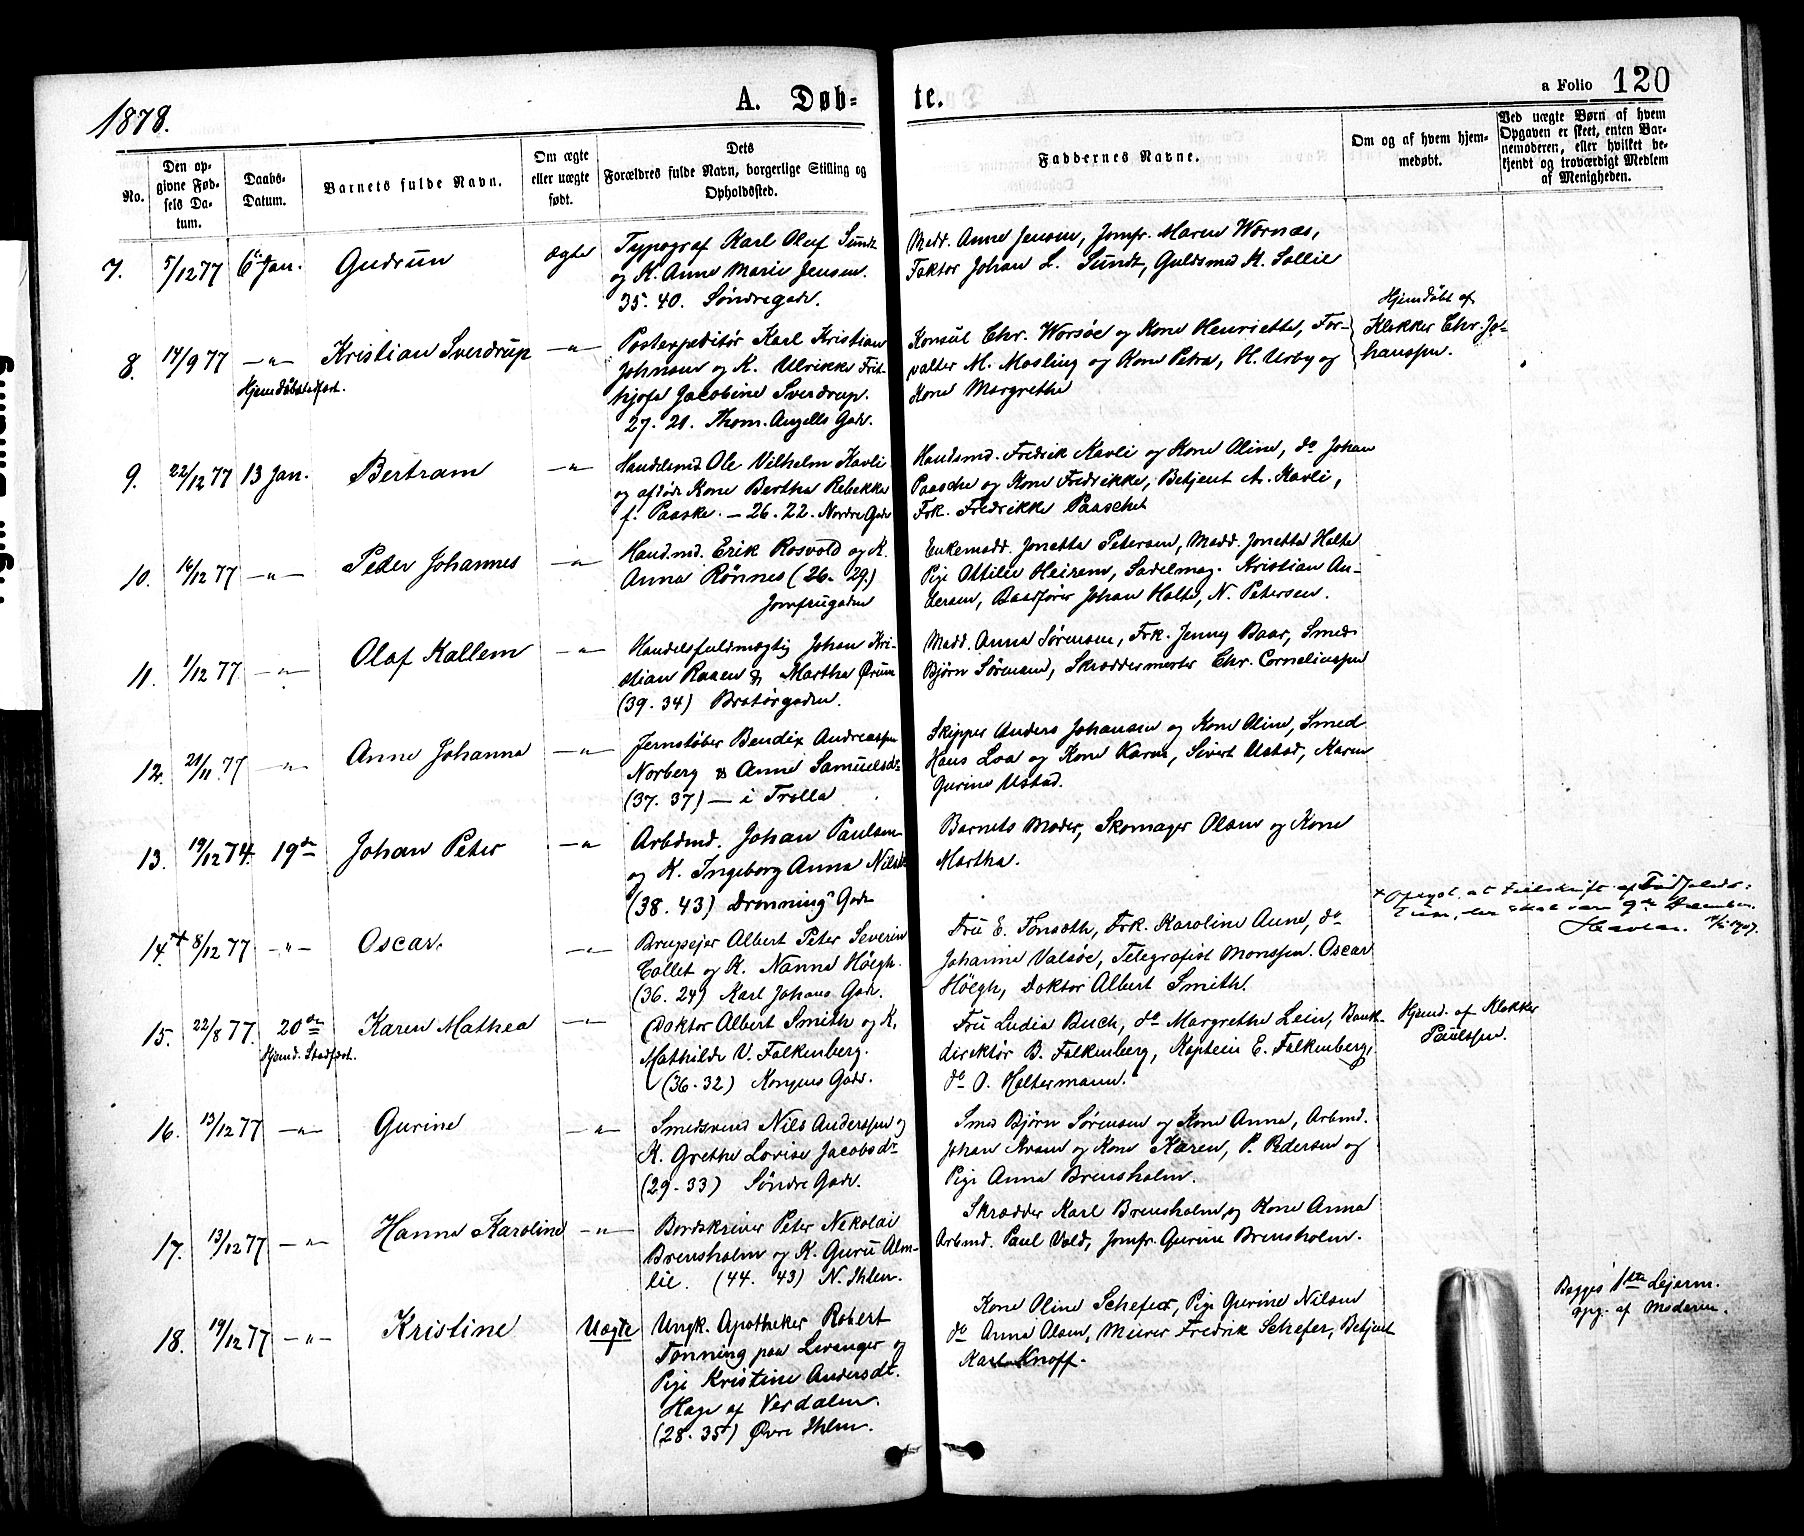 1878.
A. Døb-
te.
a Folio 120
No.
Den op-
givne Fød-
sels Da-
tum.
Daabs-
Datum.
Barnets fulde Navn.
Om ægte
eller uægte
født.
Dets
Forældres fulde Navn, borgerlige Stilling og
Opholdssted.
Faddernes Navne.
Om og af hvem hjem-
medøbt.
Ved uægte Børn af hvem
Opgaven er skeet, enten Bar-
nemoderen, eller hvilket be-
kjendt og troværdigt Medlem
af Menigheden.
7. 5/12 77 6te Jan. Gudrun ægte
Typograf Karl Oluf Sundt
og K. Anne Marie Jensen.
35. 40. Søndregade.
Madd. Anne Jensen, Jomfr. Maren Wornæs,
Faktor Johan L. Sundt, Guldsmed K. Sollie
8. 14/9 77 -"- Kristian Sverdrup -"-
Hjemdøbt stadfæst.
Postexpeditør Karl Kristian
Johnsen og K. Ulrikke Frit-
hjofa Jacobine Sverdrup.
27. 21. Thom. Angells Gade.
Konsul Chr. Worsøe og Kone Henriette, For-
valter M. Mosling og Kone Petra, H. Urby og
Kone Margrethe
Hjemdøbt af
Klokker Chr. Jo-
hanssen.
9. 22/12 77 13 Jan. Bertram -"-
Handelsmd. Ole Vilhelm Kavli
og afdøde Kone Bertha Rebekka
f. Paaske. - 26. 22. Nordre Gade
Handsmd. Fredrik Kavli og Kone Oline, do Johan
Paasche og Kone Fredrikke, Betjent A. Kavli,
Frk. Fredrikke Paasche
10. 16/12 77 -"- Peder Johannes -"-
Hand.md. Erik Rosvold og K.
Anna Rønnes (26. 29.)
Jomfrugaden
Enkemadd. Jonetta Petersen, Madd. Jonetta Holte
Pige Ottilie Heirem, Sadelmag. Kristian An-
dersen, Baadfører Johan Holte, N. Petersen.
11. 1/12 77 -"- Olaf Kallem -"-
Handelsfuldmægtig Johan Kri-
stian Raaen & Martha Ørum
(39. 34) Bratørgaden.
Madd. Anna Sørensen, Frk. Jenny Baar, Smed
Bjørn Sørensen, Skræddermester Chr. Corneliussen
12. 21/11 77 -"- Anne Johanna -"-
Jernstøber Bendix Andreassen
Norberg & Anne Samuelsdtr
(37. 37) - i Trolla
Skipper Anders Johansen og Kone Oline, Smed
Hans Loa og Kone Karen, Sivert Ustad, Karen
Gurine Ustad.
13. 19/12 74. 19de Johan Peter -"-
Arbdmd. Johan Paulsen
og K. Ingeborg Anna Nilsdt
(38. 43) Dronning Gade
Barnets Moder, Skomager Olsen og Kone
Martha.
14. + 8/12 77 -"- Oscar. -"-
Brugsejer Albert Peter Severin
Collet og K. Nanna Höegh.
(36. 24) Karl Johans Gade.
Fru E. Tønseth, Frk. Karoline Aune, do
Johanne Valsøe, Telegrafist Monssen. Oscar
Höegh, Doktor Albert Smith.
15. 22/8 77. 20de Karen Mathea -"-
Hjemd. Stadfæst.
Doktor Albert Smith og K.
Mathilde V. Falkenberg.
(36. 32) Kongens Gade.
Fru Ludia Buch, do Margrethe Lein, Bank-
direktør B. Falkenberg, Kaptein E. Falkenberg,
do O. Holtermann.
Hjemd. af Klokker
Paulssen.
16. 13/12 77 -"- Gurine -"-
Smedsvend Nils Anderssen og
K. Grethe Lovise Jacobsdtr
(29-33) Søndre Gade.
Smed Bjørn Sørensen og Kone Anna, Arbmd.
Johan Kvam og Kone Karen, P. Pedersen og
Pige Anna Brensholm.
17. 13/12 77 -"- Hanna Karoline -"-
Bordskriver Peter Nikolai
Brensholm og K. Guru Alm-
lie. (44. 43) N. Ihlen.
Skrædder Karl Brensholm, og Kone Anna
Arbmd. Paul Vold, Jomfr. Gurine Brensholm.
18. 19/12 77 -"- Kristine Uægte
Ungk. Apotheker Robert
Tønning paa Levanger og
Pige Kristine Andersdt.
Hage af Verdalen.
(28-35) Øvre Ihlen.
Kone Oline Schefer, Pige Gurine Nilsen
do Anna Olsen, Murer Fredrik Schefer, Betjent
Karl Knoff.
Begges 1ste Lejerm.
opg. af Moderen.